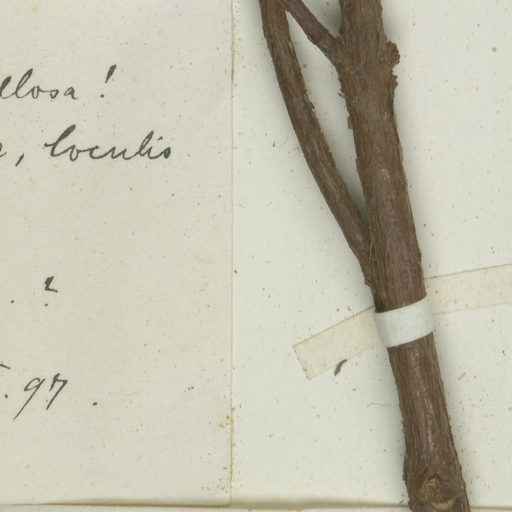 llosa!
, loculis
. ?
. 97.